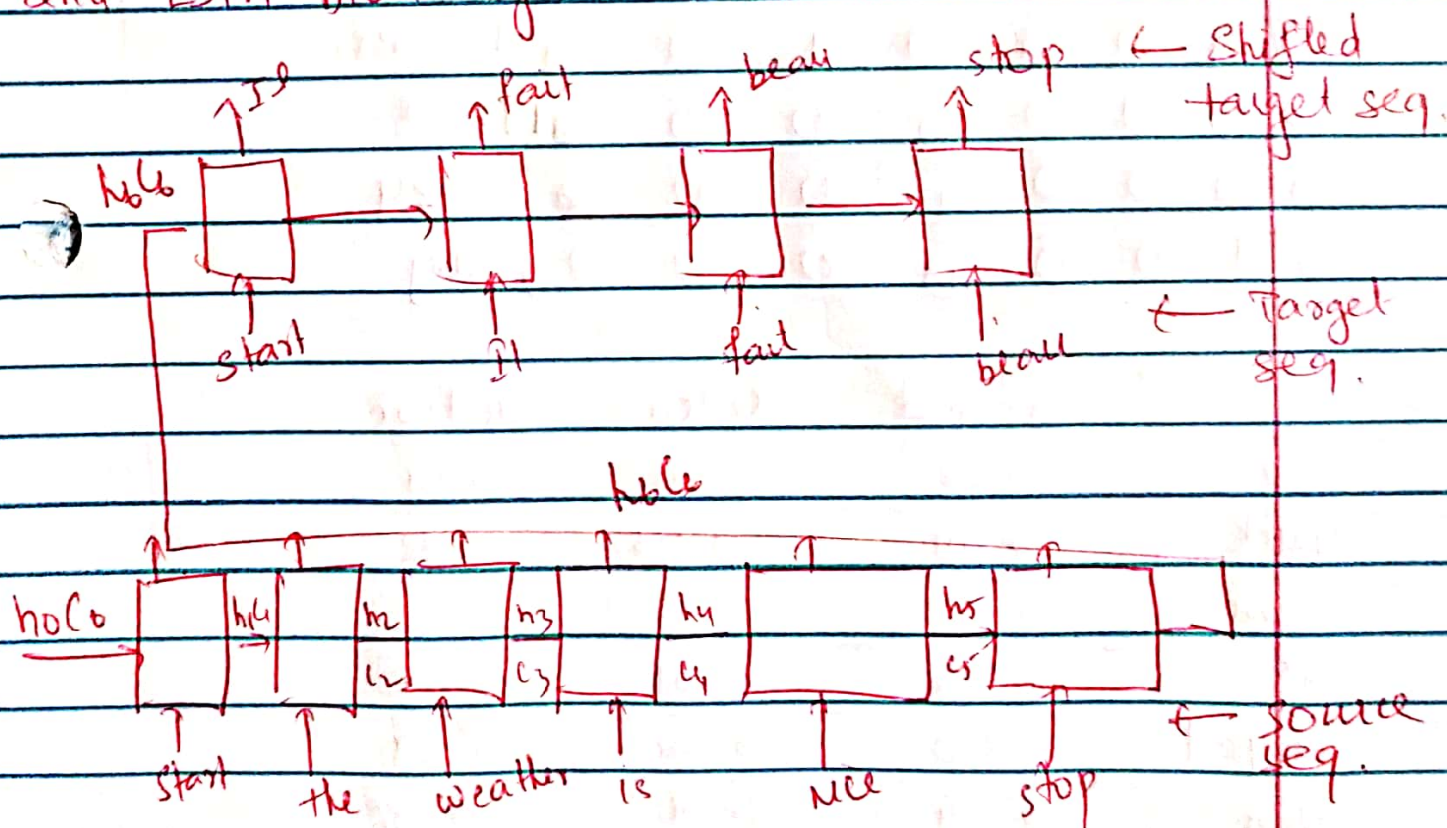 Il fait beau stop ← Shifted
target seq.
h₀C₀
start Il fait beau ← Target
seq.
h₀C₀
h₀C₀ h₁C₁ h₂ h₃ h₄ h₅
C₂ C₃ C₄ C₅
start the weather is nice stop ← source
seq.